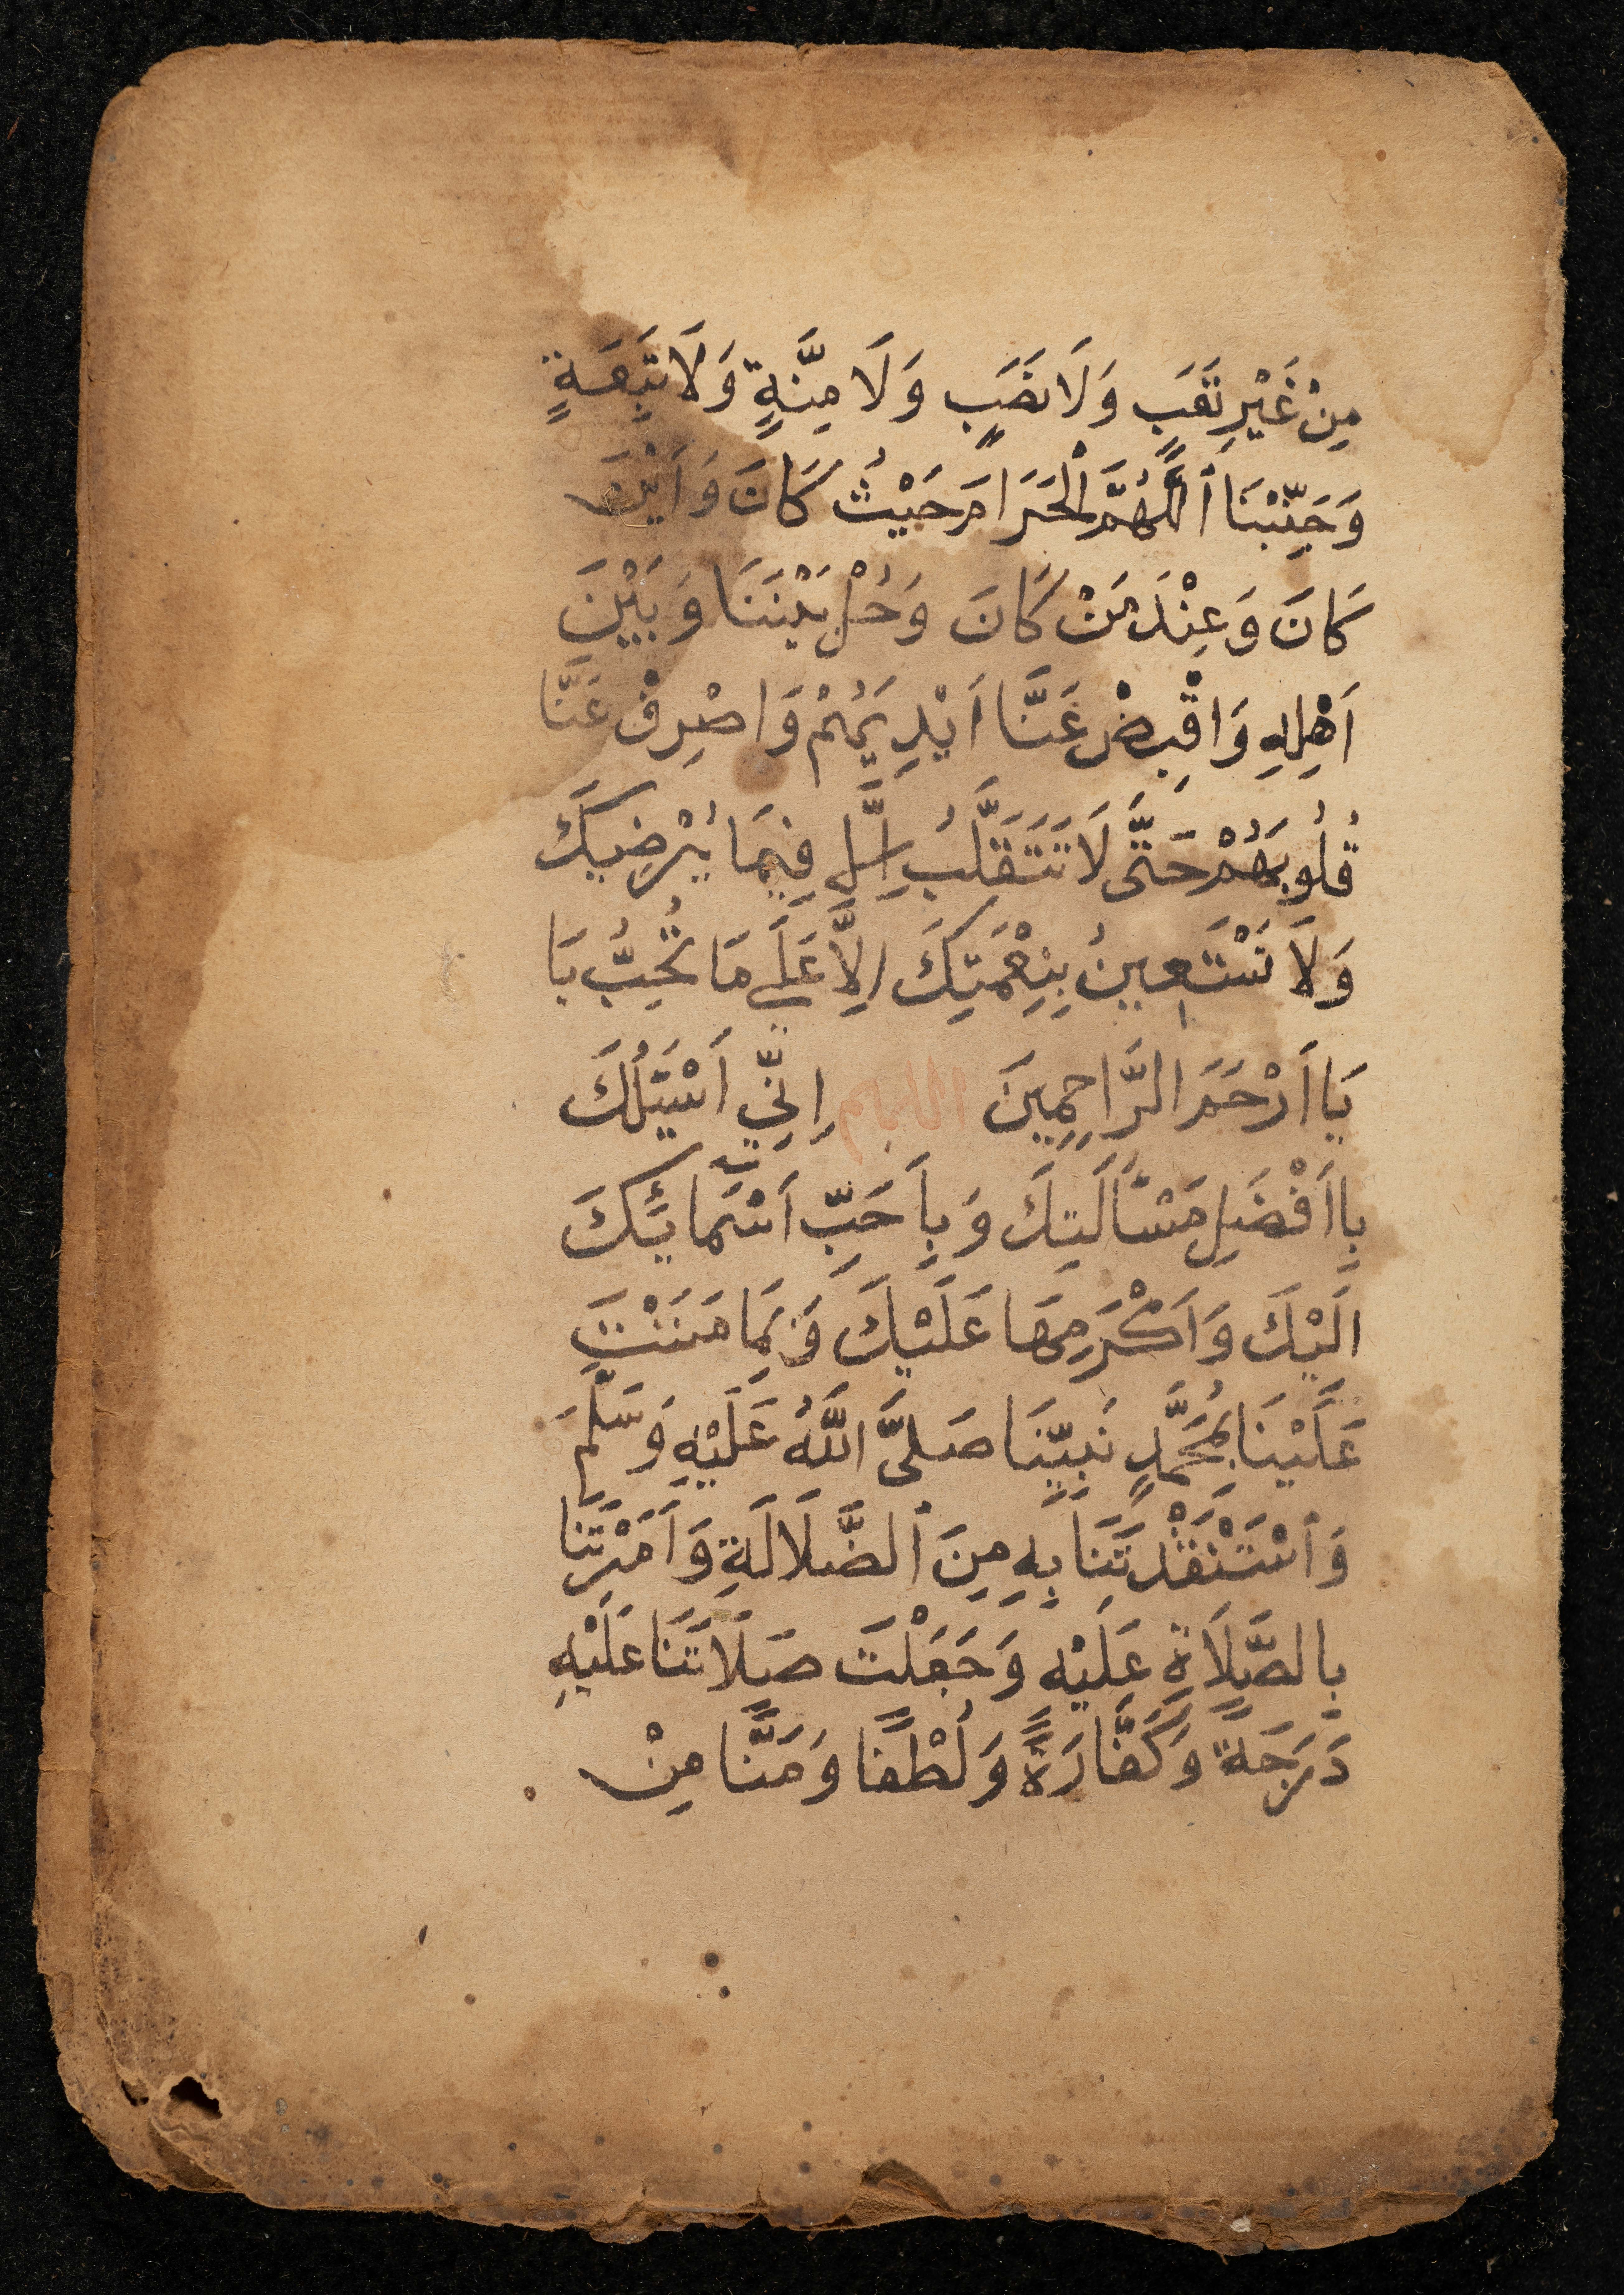 مِنْ غَيْرِ تَعَبٍ وَلَا نَصَبٍ وَلَا مِنَّةٍ وَلَا تَبِعَةٍ
وَجَنِّبْنَا ٱللَّهُمَّ الْحَرَامَ حَيْثُ كَانَ وَاَيْنَ
كَانَ وَعِنْدَ مَنْ كَانَ وَحُلْ بَيْنَنَا وَبَيْنَ
اَهْلِهِ وَاقْبِضْ عَنَّا اَيْدِيَهُمْ وَاصْرِفْ عَنَّا
قُلُوبَهُمْ حَتَّى لَا نَتَقَلَّبُ اِلَّا فِيمَا يُرْضِيكَ
وَلَا نَسْتَعِينُ بِنِعْمَتِكَ اِلَّا عَلَى مَا تُحِبُّ يَا
يَا اَرْحَمَ الرَّاحِمِينَ اللهم اِنِّي اَسْئَلُكَ
بِاَفْضَلِ مَسْأَلَتِكَ وَبِاَحَبِّ اَسْمَائِكَ
اِلَيْكَ وَاَكْرَمِهَا عَلَيْكَ وَبِمَا مَنَنْتَ
عَلَيْنَا بِمُحَمَّدٍ نَبِيِّنَا صَلَّى اللَّهُ عَلَيْهِ وَسَلَّمَ
وَٱسْتَنْقَذْتَنَا بِهِ مِنَ ٱلضَّلَالَةِ وَاَمَرْتَنَا
بِالصَّلَاةِ عَلَيْهِ وَجَعَلْتَ صَلَاتَنَا عَلَيْهِ
دَرَجَةً وَكَفَّارَةً وَلُطْفًا وَمَنًّا مِنْ